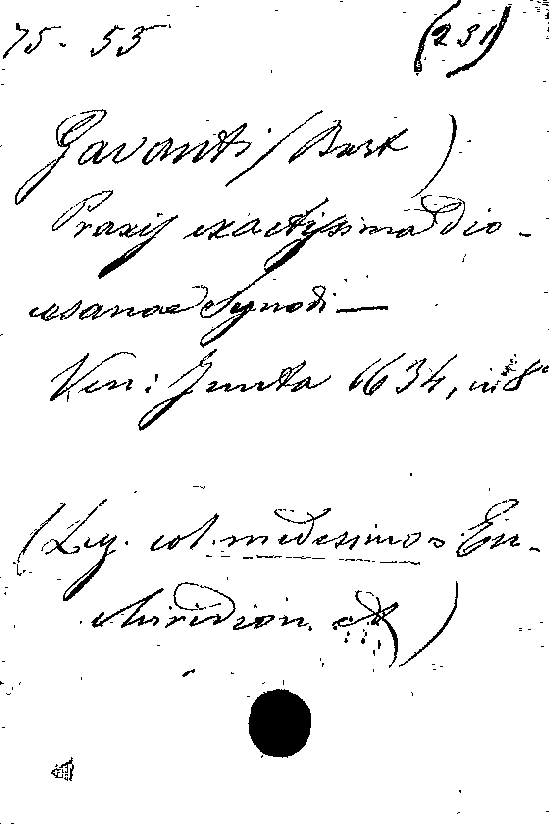 75. 55 (231)
Gavanti (Bart)
Praxis exactissima dio-
cesanae Synodi —
Ven: Junta 1634, in 8°
(Leg. col medesimo: En-
chiridion etc)